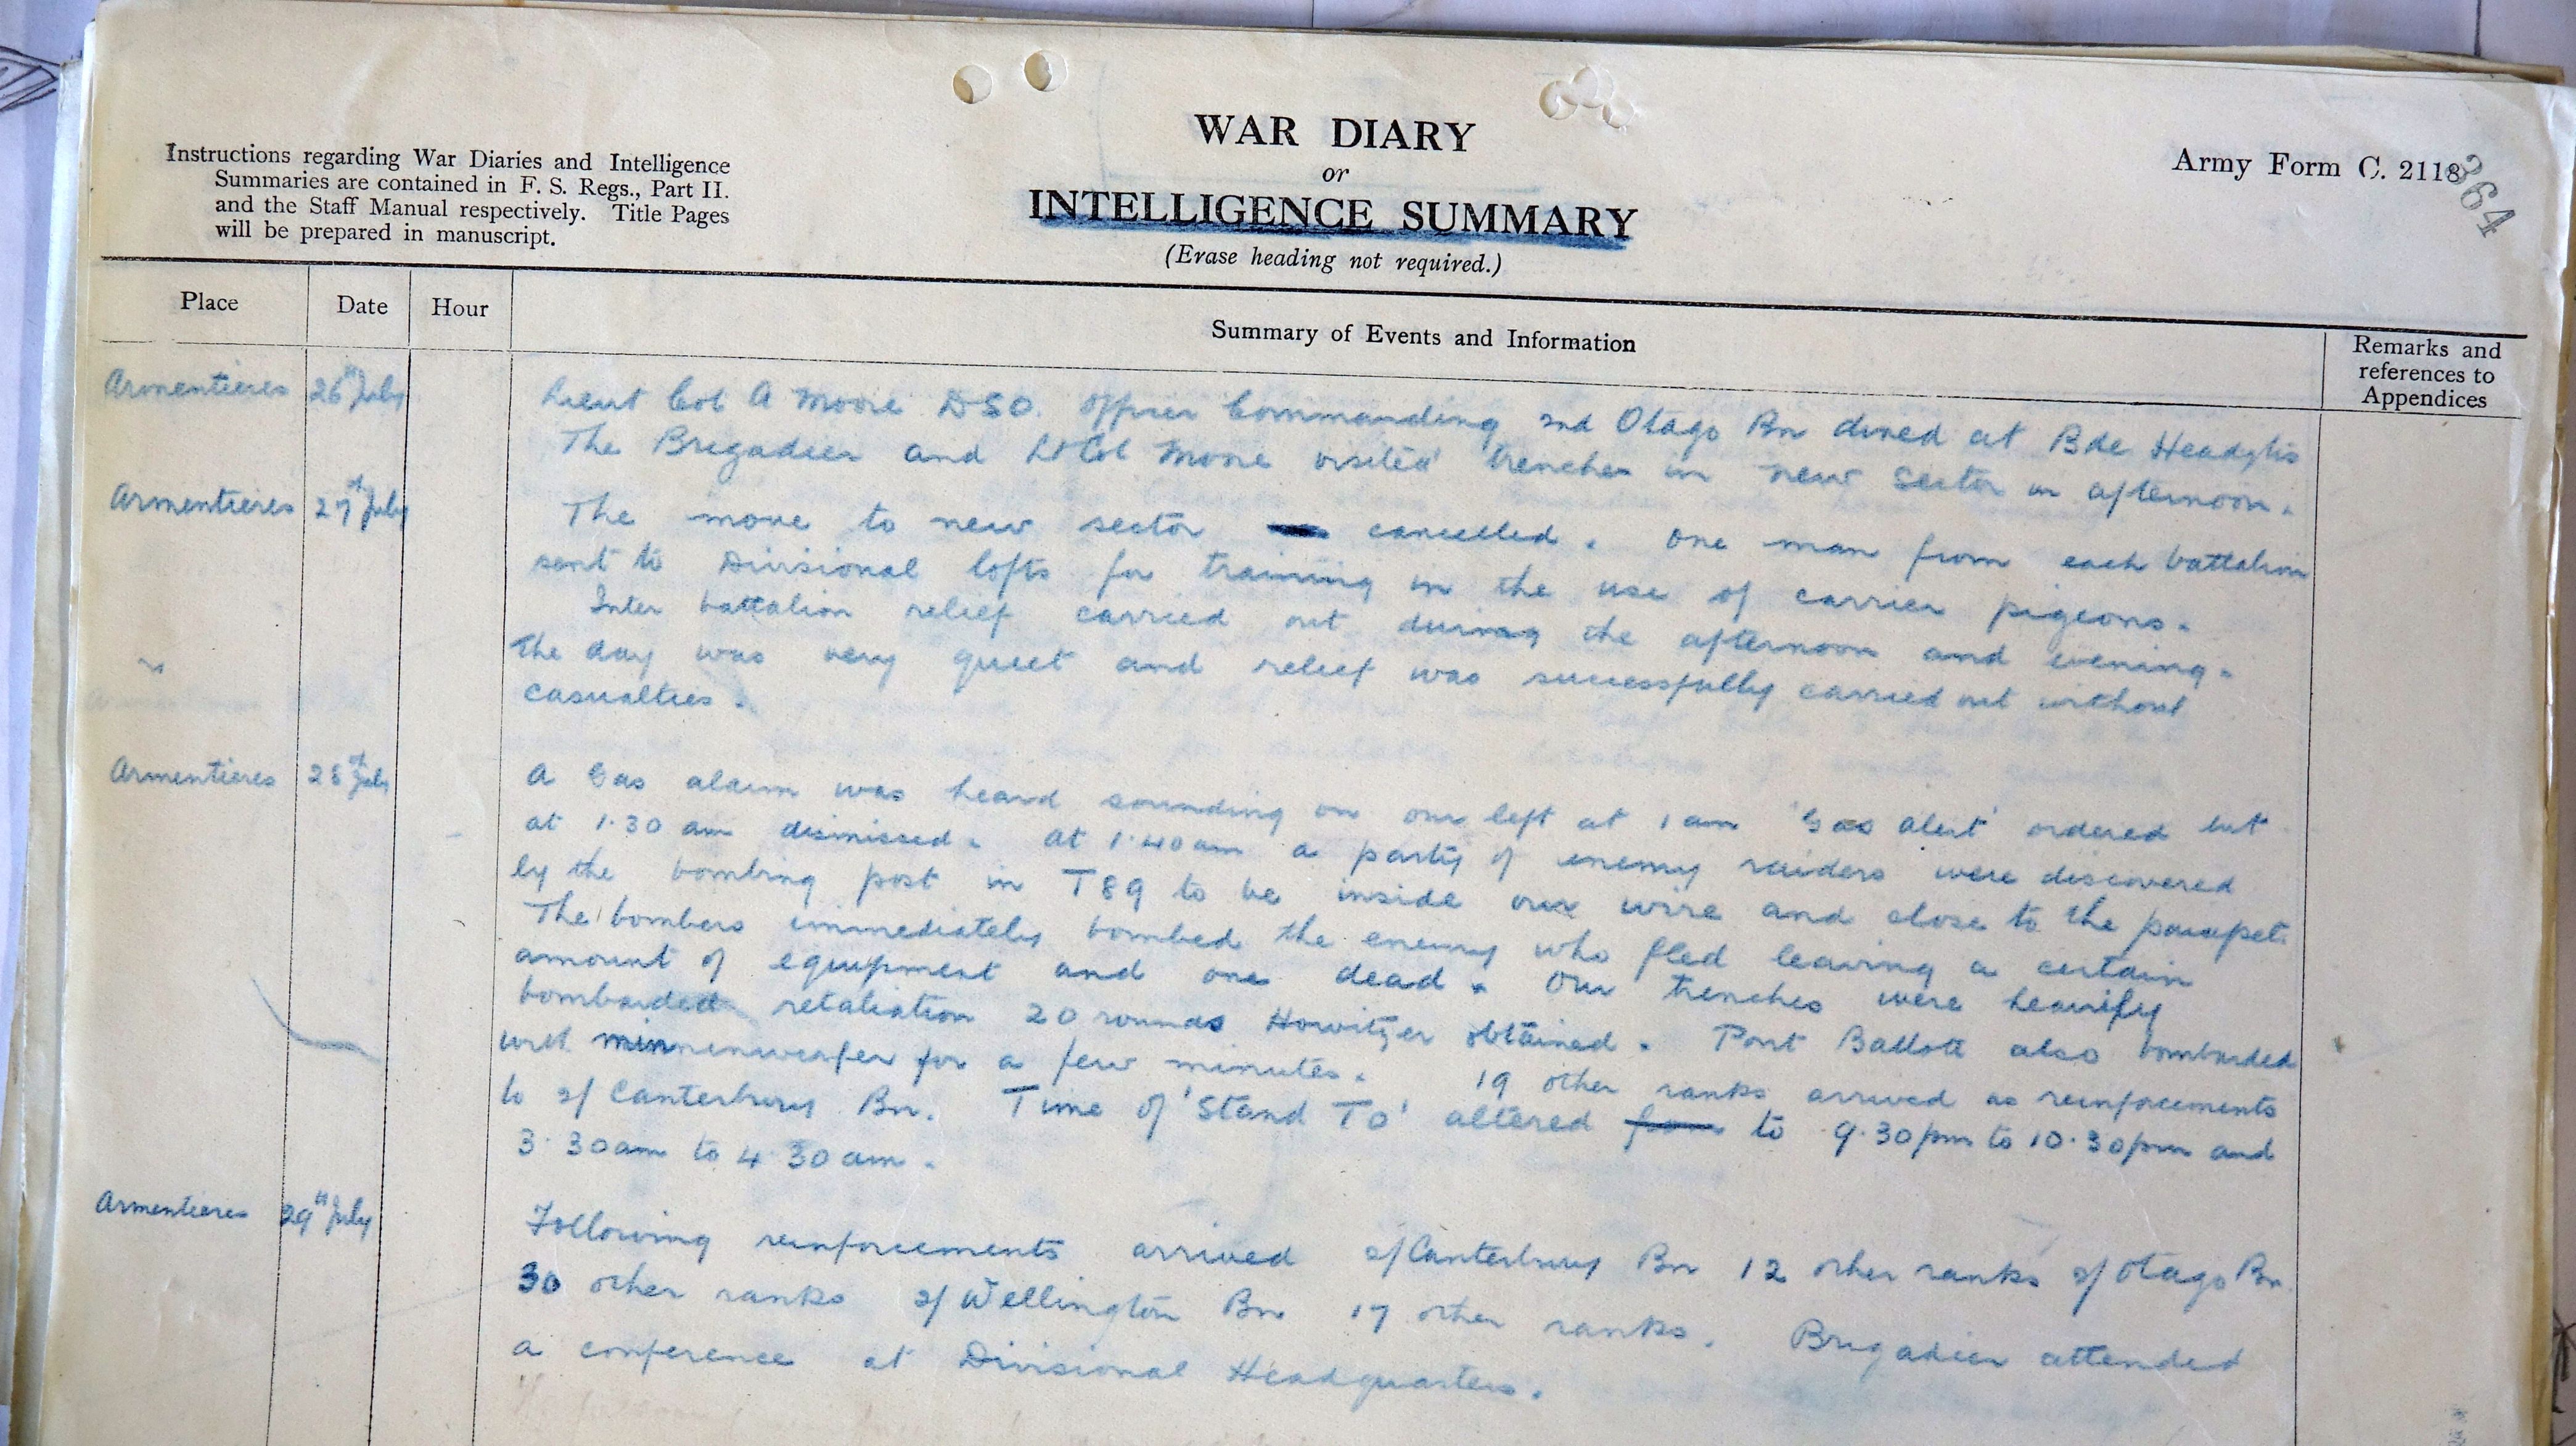 WAR DIARY
or
INTELLIGENCE SUMMARY
(Erase heading not required.)
Instructions regarding War Diaries and Intelligence
Summaries are contained in F. S. Regs., Part II.
and the Staff Manual respectively. Title Pages
will be prepared in manuscript.
Army Form C. 2118
364
Place Date Hour Summary of Events and Information Remarks and references to Appendices
Armentieres 26th July Lieut Col A Moore DSO. Officer Commanding 2nd Otago Bn dined at Bde Headqtrs
The Brigadier and Lt Col Moore visited trenches in new sector in afternoon.
Armentieres 27th July The move to new sector cancelled. One man from each battalion
sent to Divisional lofts for training in the use of carrier pigeons.
Inter battalion relief carried out during the afternoon and evening.
" The day was very quiet and relief was successfully carried out without
casualties.
Armentieres 28th July A Gas alarm was heard sounding on our left at 1 am 'Gas Alert' ordered but
at 1.30 am dismissed. At 1.40 am a party of enemy raiders were discovered
by the bombing post in T89 to be inside our wire and close to the parapet.
The bombers immediately bombed the enemy who fled leaving a certain
amount of equipment and one dead. Our trenches were heavily
bombarded retaliation 20 rounds Howitzer obtained. Port Ballott also bombarded
with minnenwerfer for a few minutes. 19 other ranks arrived as reinforcements
to 2/ Canterbury Bn. Time of 'Stand To' altered from to 9.30 pm to 10.30 pm and
3.30 am to 4 30 am.
Armentieres 29th July Following reinforcements arrived 2/Canterbury Bn 12 other ranks 2/Otago Bn
30 other ranks 2/Wellington Bn 17 other ranks. Brigadier attended
a conference at Divisional Headquarters.